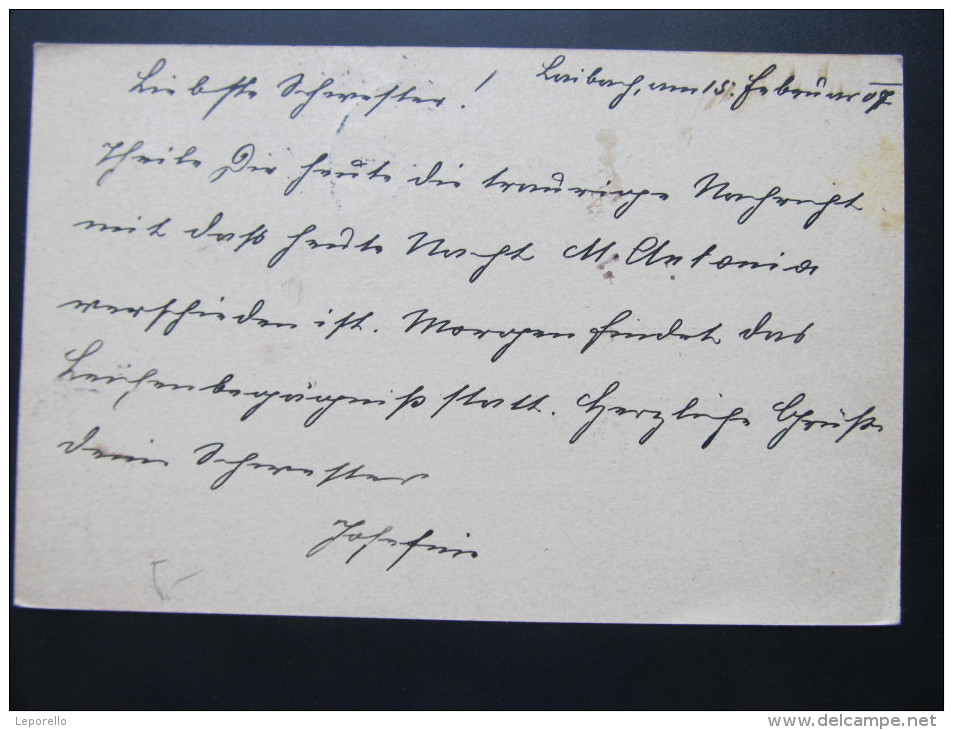 Laibach, am 15. Februar 07
Liebste Schwester!
Theile Dir heute die traurige Nachricht
mit daß heute Nacht M. Antonia
verschieden ist. Morgen findet das
Leichenbegägniß statt. Herzliche Grüße
deine Schwester
Josefine
Leporello
www.delcampe.net